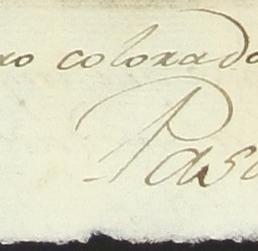 ro colorado
Pas